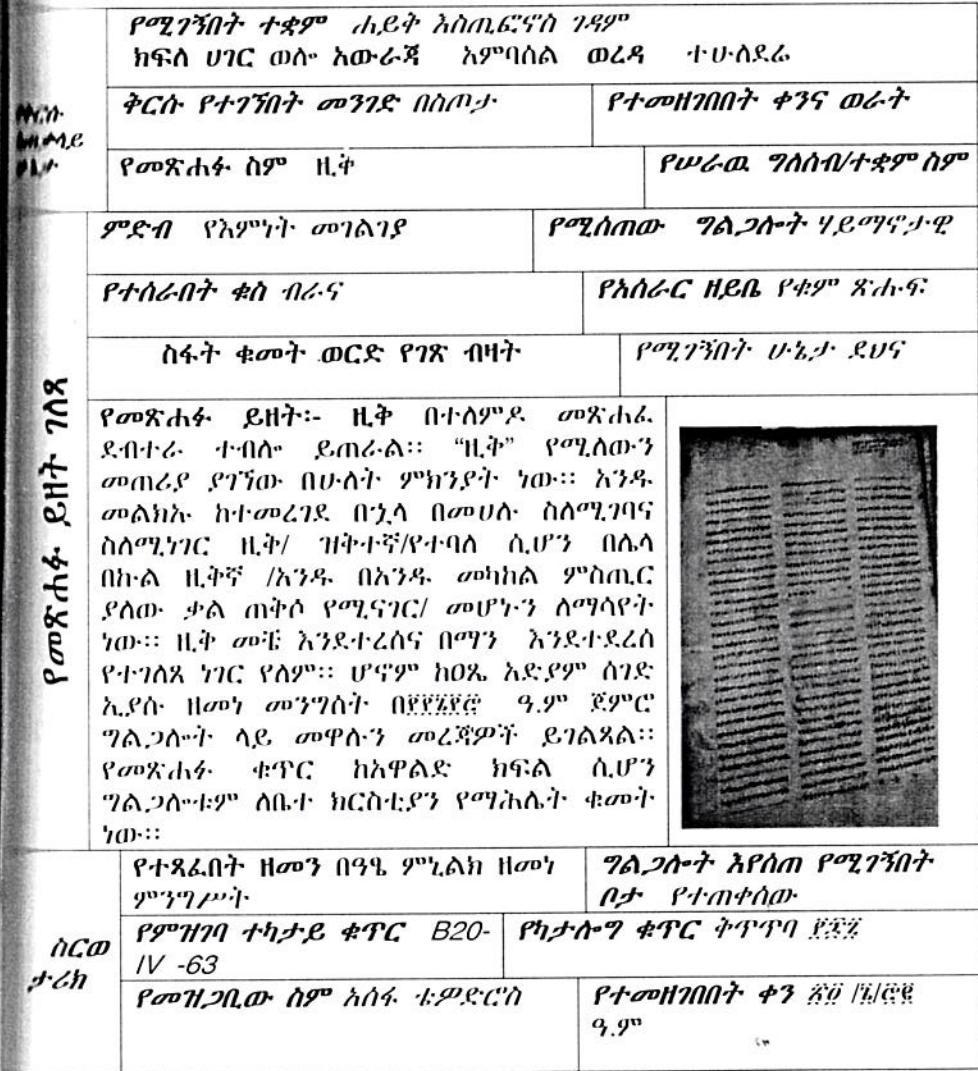 የሚገኝበት ተቋም ሐይቅ እስጢፎኖስ ገዳም
ክፍለ ሀገር ወሎ አውራጃ አምባሰል ወረዳ ተሁለደሬ
ቅርሱ የተገኘበት መንገድ በስጦታ
የተመዘገበበት ቀንና ወራት
የመጽሐፉ ስም ዚቅ
የሠራዉ ግለሰብ/ተቋም ስም
ምድብ የእምነት መገልገያ
የሚሰጠው ግልጋሎት ሃይማኖታዊ
የተሰራበት ቁስ ብራና
የአሰራር ዘይቤ የቁም ጽሑፍ
ስፋት ቁመት ወርድ የገጽ ብዛት
የሚገኝበት ሁኔታ ደህና
የመጽሐፉ ይዘት ገለጻ
የመጽሐፉ ይዘት፡- ዚቅ በተለምዶ መጽሐፈ
ደብተራ ተብሎ ይጠራል፡፡ “ዚቅ” የሚለውን
መጠሪያ ያገኘው በሁለት ምክንያት ነው፡፡ አንዱ
መልክኡ ከተመረገደ በኋላ በመሀሉ ስለሚገባና
ስለሚነገር ዚቅ/ ዝቅተኛ/የተባለ ሲሆን በሌላ
በኩል ዚቅኛ /አንዱ በአንዱ መካከል ምስጢር
ያለው ቃል ጠቅሶ የሚናገር/ መሆኑን ለማሳየት
ነው፡፡ ዚቅ መቼ እንደተረሰና በማን እንደተደረስ
የተገለጸ ነገር የለም፡፡ ሆኖም ከዐጼ አድያም ሰገድ
ኢያሱ ዘመነ መንግስት ዓ.ም ጀምሮ
ግልጋሎት ላይ መዋሉን መረጃዎች ይገልጻል፡፡
የመጽሐፉ ቁጥር ከአዋልድ ክፍል ሲሆን
ግልጋሎቱም ለቤተ ክርስቲያን የማሕሌት ቁመት
ነው፡፡
ስርወ
ታሪክ
የተጻፈበት ዘመን በዓፄ ምኒልክ ዘመነ
ምንግሥት
ግልጋሎት እየሰጠ የሚገኝበት
ቦታ የተጠቀሰው
የምዝገባ ተካታይ ቁጥር B20-
IV -63
የካታሎግ ቁጥር ቅጥጥባ
የመዝጋቢው ስም አሰፋ ቴዎድሮስ
የተመዘገበበት ቀን
ዓ.ም